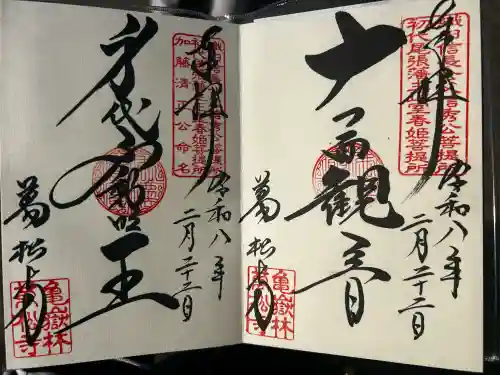 奉拝
織田信長公父信秀公菩提所
初代尾張藩主正室春姫菩提所
十一面観音
令和八年
二月二十二日
萬松寺
亀嶽林
萬松寺
奉拝
加藤清正公命名
身代不動明王
令和八年
二月二十二日
萬松寺
亀嶽林
萬松寺